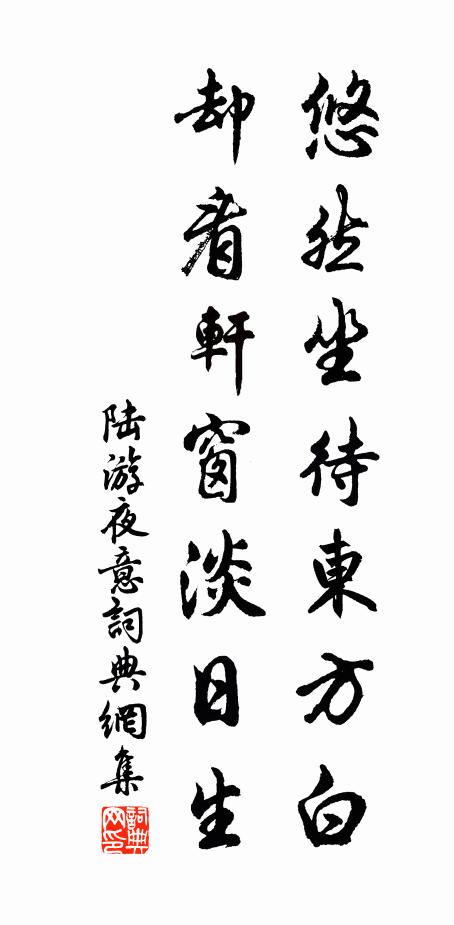 悠然坐待東方白
却看軒窗淡日生
陆游夜意詞典網集
詞典網印